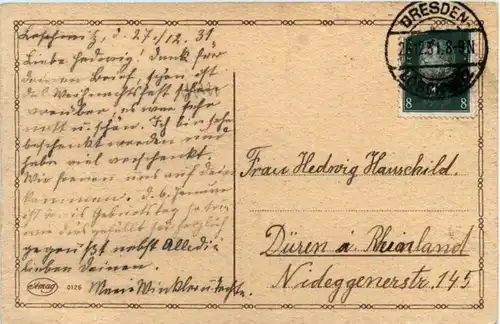 Loschwitz, d. 27./12. 31
Liebe Hedwig! Dank für
deinen Brief, schon ist
das Weihnachtsfest
vorüber, es war sehr
nett u. schön. Ich bin sehr
beschenkt worden und
habe viel verschenkt.
Wir freuen uns auf dein
kommen. d. 6. Januar
ist Geburtstag
herzlich
gegrüßt nebst Alle die
lieben Deinen.
Marie Winkler
Amag 0126
DRESDEN-
31.8-9N
LOSCHWITZ
8 8
Frau Hedwig Hauschild.
Düren i. Rheinland
Nideggenerstr. 145